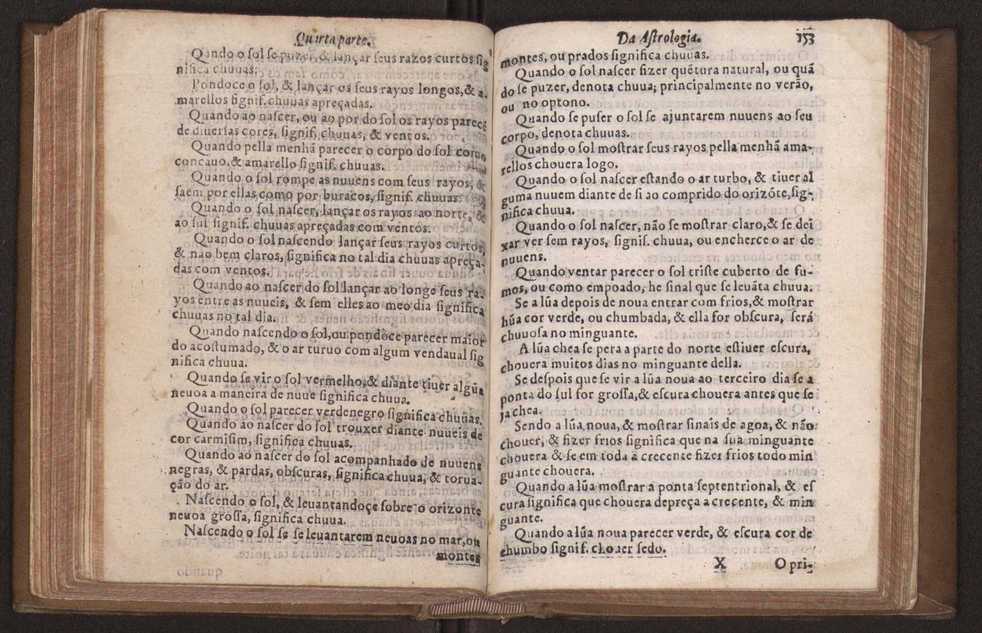 Quarta parte.
Quando o sol se puzer, & lançar seus razos curtos sig
nifica chuuas.
Pondoce o sol, & lançar os seus rayos longos, & a-
marellos signif. chuuas apreçadas.
Quando ao nascer, ou ao por do sol os rayos pareçẽ
de diuersas cores, signif, chuuas, & ventos.
Quando pella menhã parecer o corpo do sol como
concauo, & amarello signif. chuuas.
Quando o sol rompe as nuuens com seus rayos, &
saem por ellas como por buracos, signif. chuuas.
Quando o sol nascer, lançar os rayos ao norte, &
ao sul signif. chuuas apreçadas com ventos.
Quando o sol nascendo lançar seus rayos curtos,
& não bem claros, significa no tal dia chuuas apreça-
das com ventos.
Quando ao nascer do sol lançar ao longe seus ra-
yos entre as nuueis, & sem elles ao meo dia significa
chuuas no tal dia.
Quando nascendo o sol, ou pondoce parecer maior
do acostumado, & o ar turuo com algum vendaual sig
nifica chuua.
Quando se vir o sol vermelho, & diante tiuer algũa
neuoa a maneira de nuue significa chuua.
Quando o sol parecer verdenegro significa chuuas.
Quando ao nascer do sol trouxer diante nuueis de
cor carmisim, significa chuuas.
Quando ao nascer do sol acompanhado de nuuens
negras, & pardas, obscuras, significa chuua, & torua-
ção do ar.
Nascendo o sol, & leuantandoçe sobre o orizonte
neuoa grossa, significa chuua.
Nascendo o sol se se leuantarem neuoas no mar, ou
montes
Da Astrologia. 153
montes, ou prados significa chuuas.
Quando o sol nascer fizer quẽtura natural, ou quã
do se puzer, denota chuua; principalmente no verão,
ou no optono.
Quando se puser o sol se ajuntarem nuuens ao seu
corpo, denota chuuas.
Quando o sol mostrar seus rayos pella menhã ama-
rellos chouera logo.
Quando o sol nascer estando o ar turbo, & tiuer al
guma nuuem diante de si ao comprido do orizõte, sig-
nifica chuua.
Quando o sol nascer, não se mostrar claro, & se dei
xar ver sem rayos, signif. chuua, ou encherce o ar de
nuuens.
Quando ventar parecer o sol triste cuberto de fu-
mos, ou como empoado, he sinal que se leuãta chuua.
Se a lũa depois de noua entrar com frios, & mostrar
hũa cor verde, ou chumbada, & ella for obscura, será
chuuosa no minguante.
A lũa chea se pera a parte do norte estiuer escura,
chouera muitos dias no minguante della.
Se despois que se vir a lũa noua ao terceiro dia se a
ponta do sul for grossa, & escura chouera antes que se
ja chea.
Sendo a lũa noua, & mostrar sinais de agoa, & não
chouer, & fizer frios significa que na sua minguante
chouera & se em toda a crecente fizer frios todo min
guante chouera.
Quando a lũa mostrar a ponta septentrional, & es
cura significa que chouera depreça a crecente, & min
guante.
Quando a lũa noua parecer verde, & escura cor de
chumbo signif. chouer sedo.
X O pri-